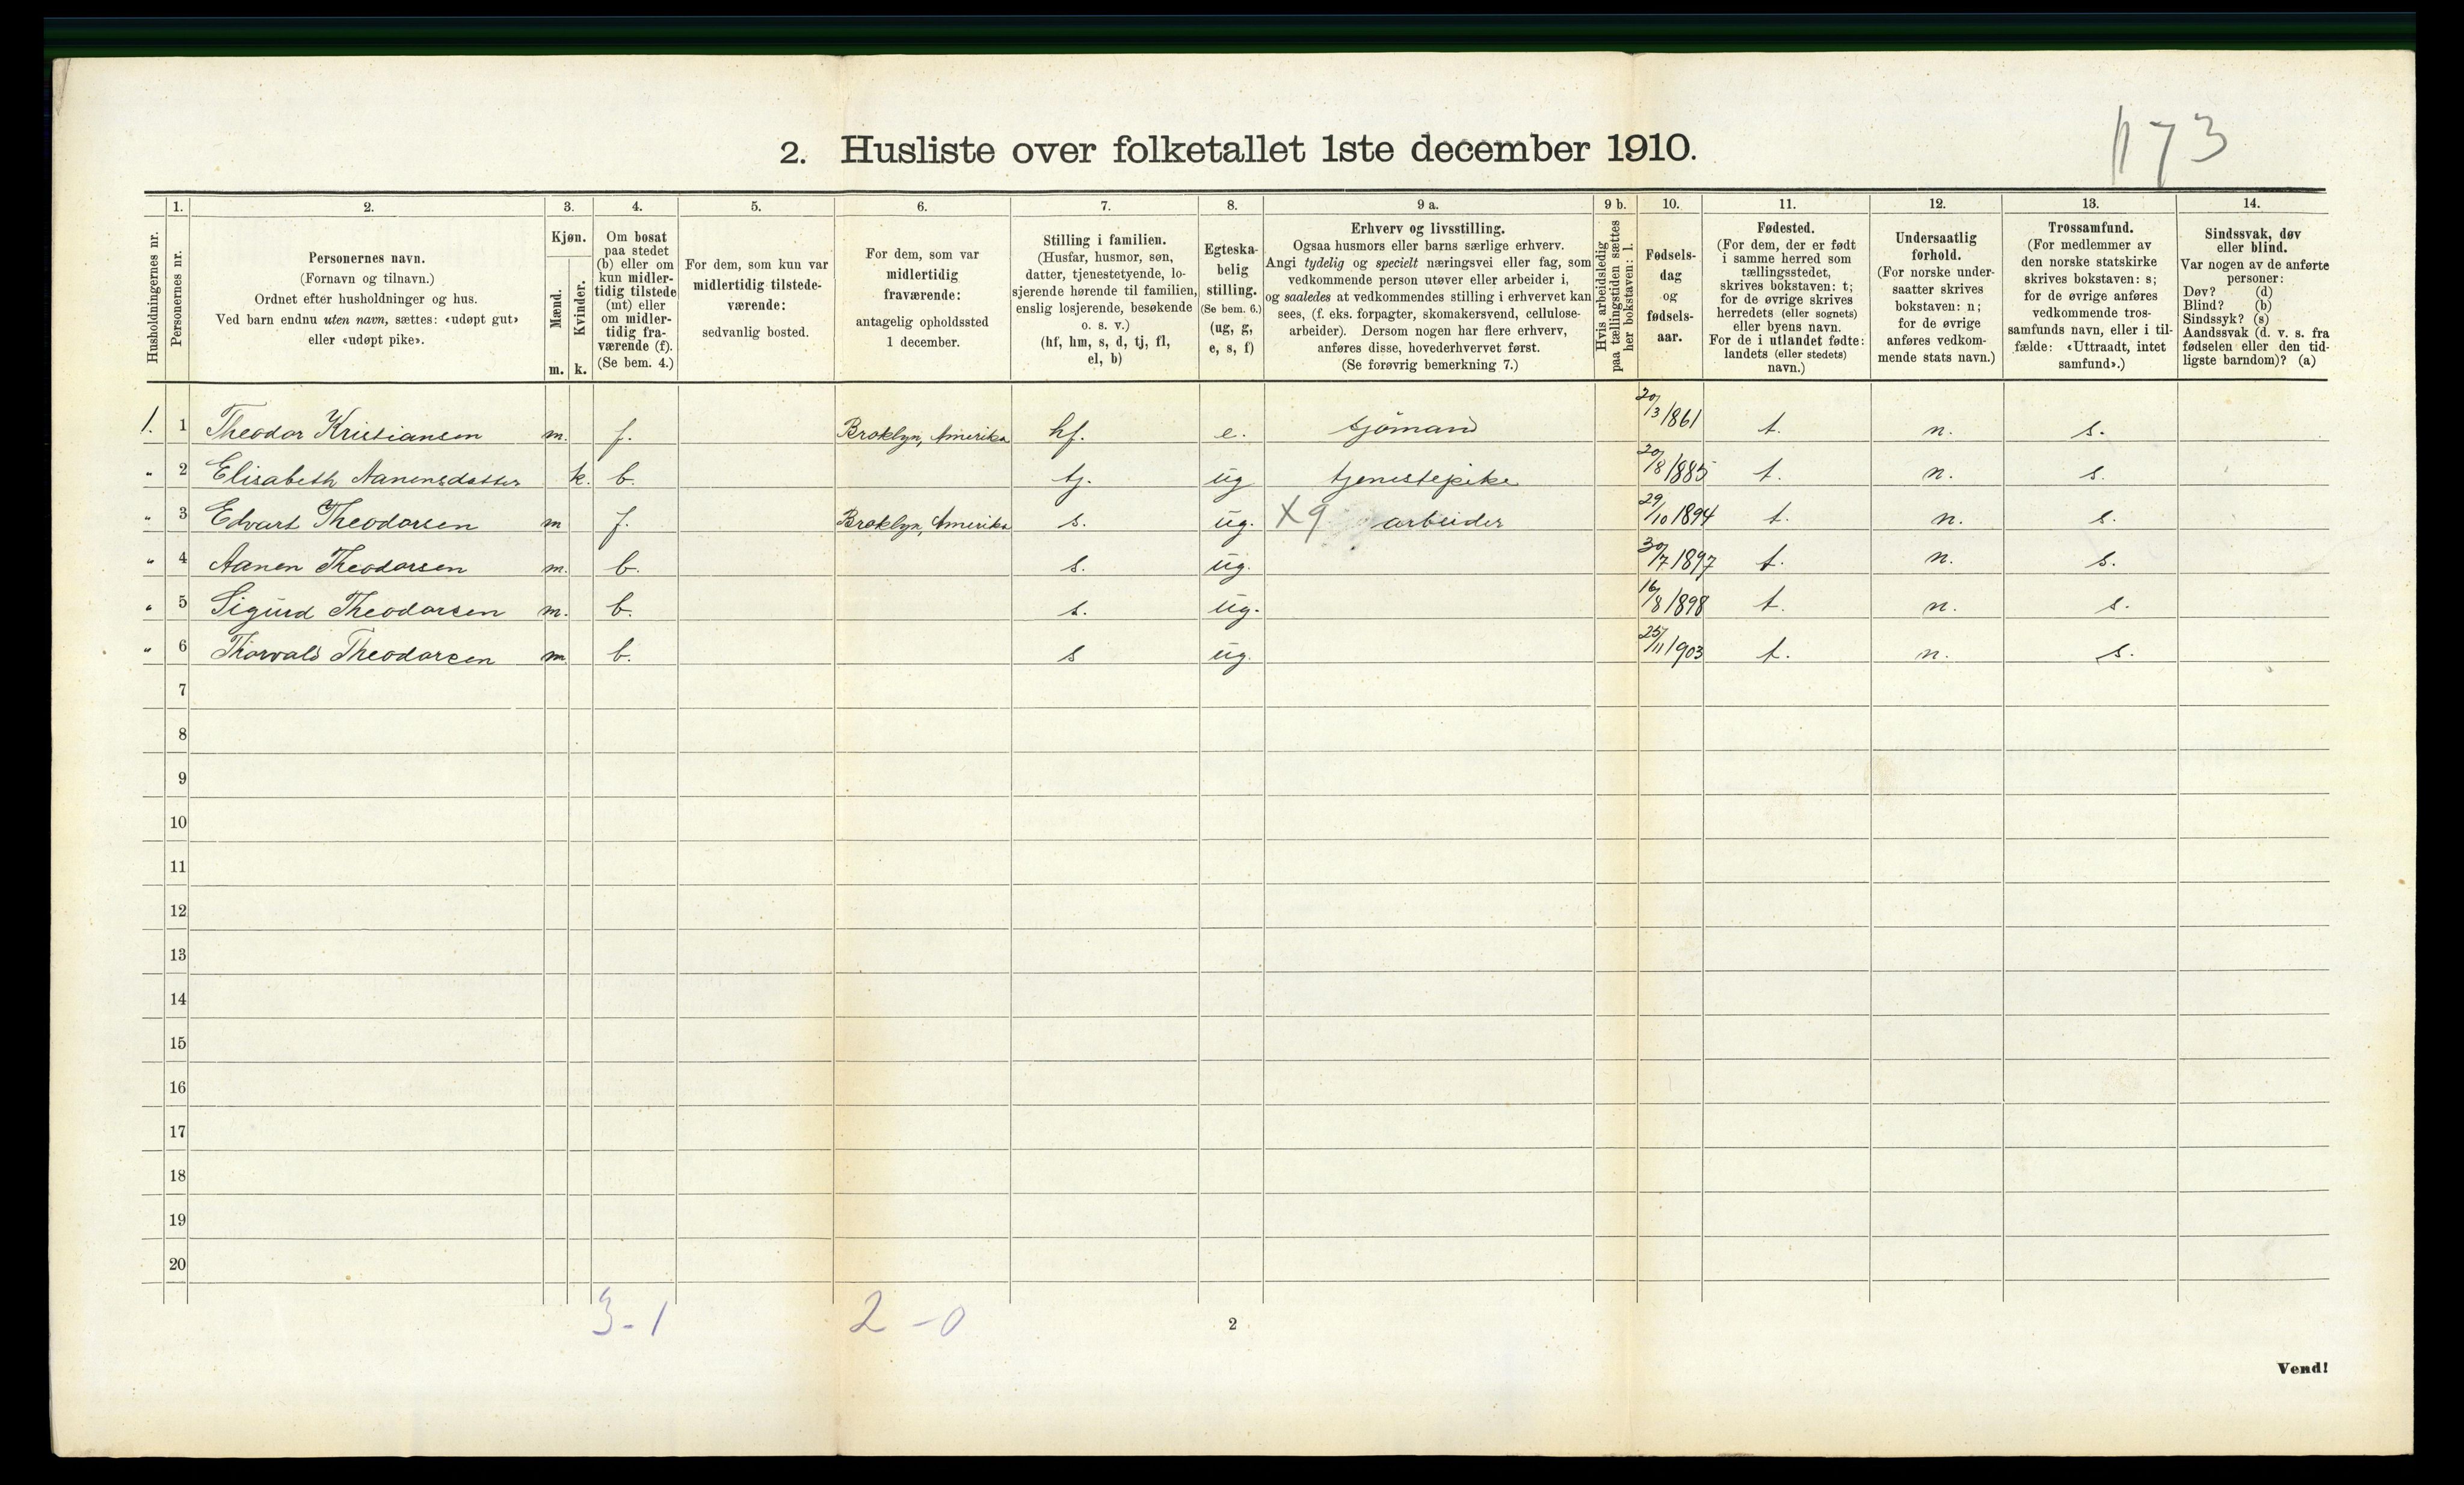 173
2. Husliste over folketallet 1ste december 1910.
Husholdningernes nr.
1. Personernes nr.
2. Personernes navn.
(Fornavn og tilnavn.)
Ordnet efter husholdninger og hus.
Ved barn endnu uten navn, sættes: «udøpt gut»
eller «udøpt pike».
3. Kjøn.
Mænd. Kvinder.
m. k.
4. Om bosat
paa stedet
(b) eller om
kun midler-
tidig tilstede
(mt) eller
om midler-
tidig fra-
værende (f).
(Se bem. 4.)
5. For dem, som kun var
midlertidig tilstede-
værende:
sedvanlig bosted.
6. For dem, som var
midlertidig
fraværende:
antagelig opholdssted
1 december.
7. Stilling i familien.
(Husfar, husmor, søn,
datter, tjenestetyende, lo-
sjerende hørende til familien,
enslig losjerende, besøkende
o. s. v.)
(hf, hm, s, d, tj, fl,
el, b)
8. Egteska-
belig
stilling.
(Se bem. 6.)
(ug, g,
e, s, f)
9 a. Erhverv og livsstilling.
Ogsaa husmors eller barns særlige erhverv.
Angi tydelig og specielt næringsvei eller fag, som
vedkommende person utøver eller arbeider i,
og saaledes at vedkommendes stilling i erhvervet kan
sees, (f. eks. forpagter, skomakersvend, cellulose-
arbeider). Dersom nogen har flere erhverv,
anføres disse, hovederhvervet først.
(Se forøvrig bemerkning 7.)
9 b. Hvis arbeidsledig
paa tællingstiden sættes
her bokstaven: l.
10. Fødsels-
dag
og
fødsels-
aar.
11. Fødested.
(For dem, der er født
i samme herred som
tællingsstedet,
skrives bokstaven: t;
for de øvrige skrives
herredets (eller sognets)
eller byens navn.
For de i utlandet fødte:
landets (eller stedets)
navn.)
12. Undersaatlig
forhold.
(For norske under-
saatter skrives
bokstaven: n;
for de øvrige
anføres vedkom-
mende stats navn.)
13. Trossamfund.
(For medlemmer av
den norske statskirke
skrives bokstaven: s;
for de øvrige anføres
vedkommende tros-
samfunds navn, eller i til-
fælde: «Uttraadt, intet
samfund».)
14. Sindssvak, døv
eller blind.
Var nogen av de anførte
personer:
Døv? (d)
Blind? (b)
Sindssyk? (s)
Aandssvak (d. v. s. fra
fødselen eller den tid-
ligste barndom)? (a)
1. 1 Theodor Kristiansen m. f. Broklyn, Amerika hf. e. sjømand 20/3 1861 t. n. s.
" 2 Elisabeth Aanensdatter k. b. tj. ug tjenestepike 20/8 1885 t. n. s.
" 3 Edvart Theodorsen m f. Broklyn, Amerika s. ug. X9 arbeider 29/10 1894 t. n. s.
" 4 Aanen Theodorsen m. b. s. ug. 30/7 1897 t. n. s.
" 5 Sigurd Theodorsen m. b. s. ug. 16/8 1898 t. n. s.
" 6 Thorvald Theodorsen m b. s ug. 25/11 1903 t. n. s.
7
8
9
10
11
12
13
14
15
16
17
18
19
20
3-1 2-0
2
Vend!